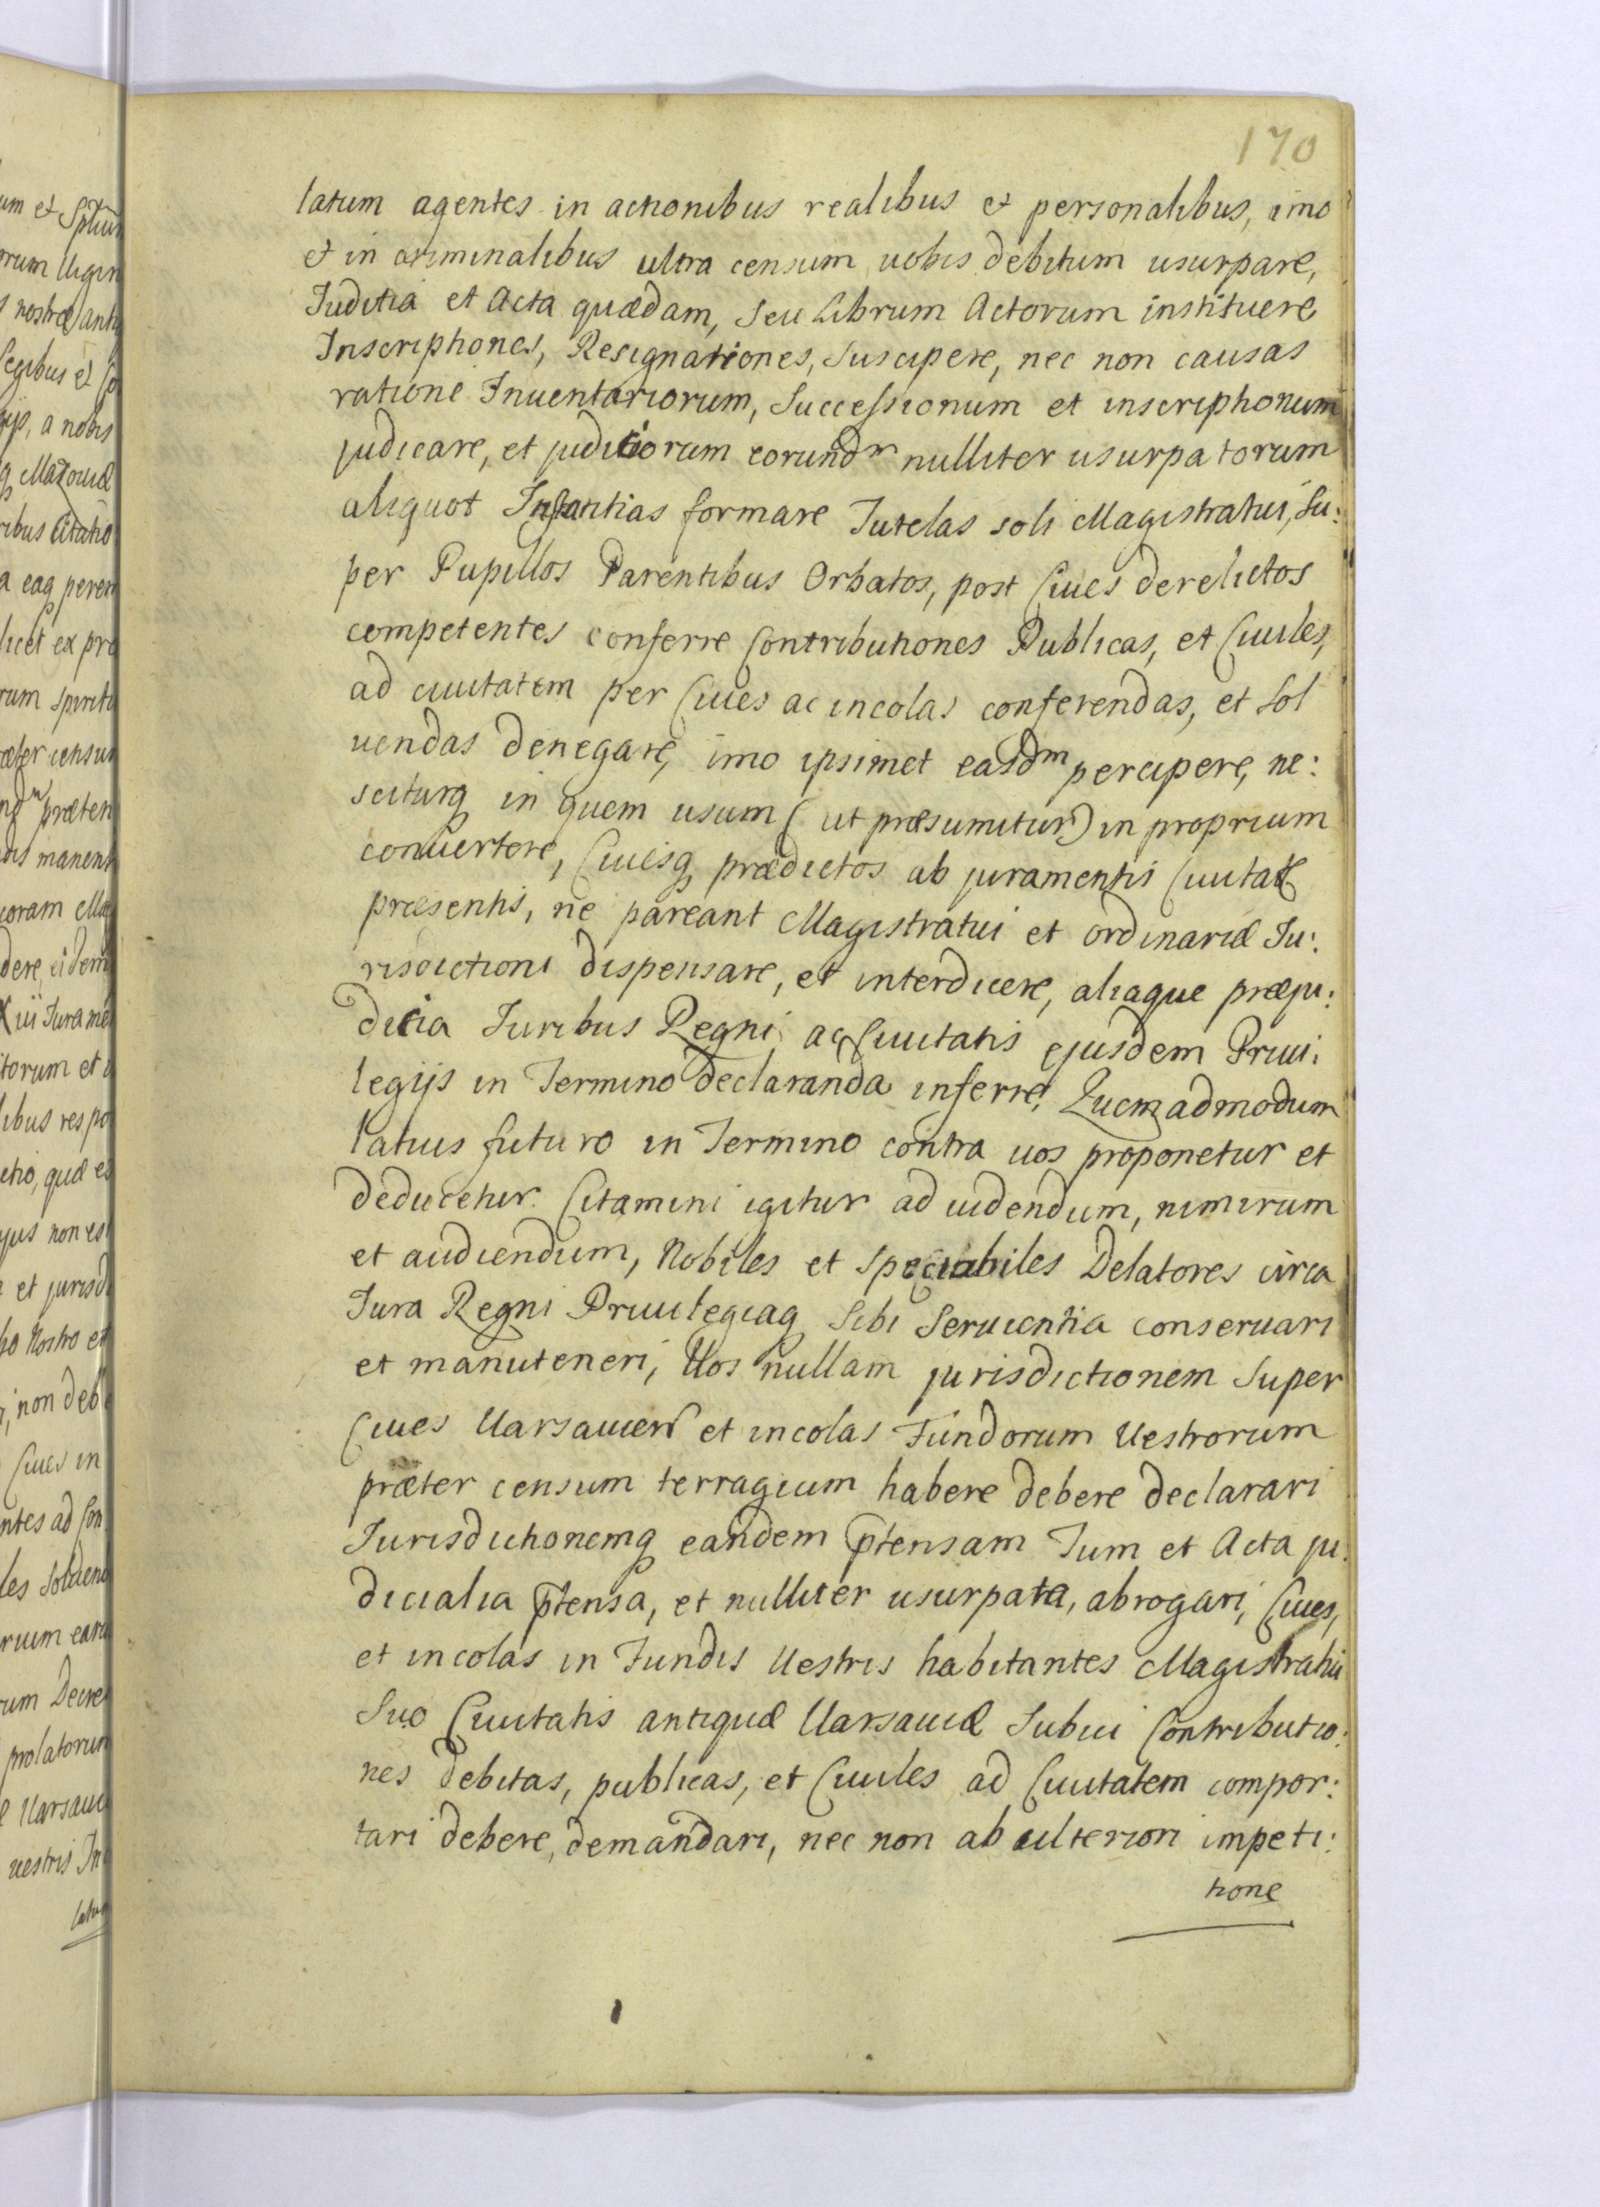 170
latum agentes in actionibus realibus et personalibus, imo
et in criminalibus ultra censum uobis debitum usurpare,
Juditia et Acta quædam, seu Librum Actorum instituere
Inscriptiones, Resignationes, suscipere, nec non causas
ratione Inuentariorum, Successionum et inscriptionum
judicare, et juditiorum eorundm nulliter usurpatorum
aliquot Instantias formare Tutelas soli Magistratui, su:
per Pupillos Parentibus Orbatos, post Ciues derelictos
competentes conferre Contributiones Publicas, et Ciuiles,
ad ciuitatem per Ciues ac incolas conferendas, et sol
uendas denegare, imo ipsimet easdm percipere, ne:
sciturq in quem usum (ut præsumitur) in proprium
conuertere, Ciuesq prædictos ab juramentis Ciuitate
præsentis, ne pareant Magistratui et ordinariæ Ju:
risdictioni dispensare, et interdicere, aliaque præju:
dicia Juribus Regni ac Ciuitatis ejusdem Priui:
legijs in Termino declaranda inferre. Quemadmodum
latius futuro in Termino contra uos proponetur et
deducetur. Citamini igitur ad uidendum, nimirum
et audiendum, Nobiles et Spectabiles Delatores circa
Jura Regni Priuilegiaq Sibi Seruientia conseruari
et manuteneri, Uos nullam jurisdictionem super
Ciues Uarsauien et incolas Fundorum Uestrorum
præter censum terragium habere debere declarari
Jurisdictionemq eandem ptensam Tum et Acta ju:
dicialia ptensa, et nulliter usurpata, abrogari, Ciues,
et incolas in Fundis Uestris habitantes Magistratui
Suo Ciuitatis antiquæ Uarsauiæ Subiui Contributio:
nes debitas, publicas, et Ciuiles ad Ciuitatem compor:
tari debere, demandari, nec non ab ulteriori impeti:
tione